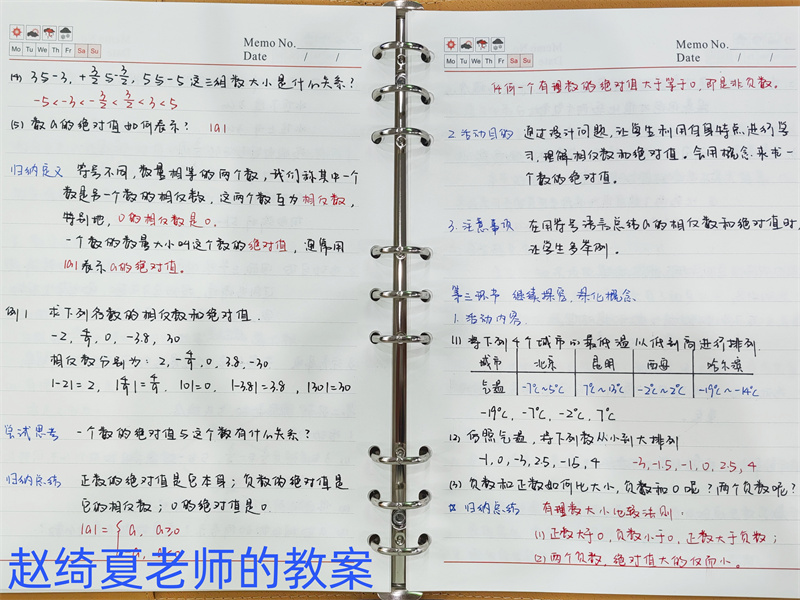 Memo No.
Date / /
Mo Tu We Th Fr Sa Su
(4) 3与-3, +3/2与-3/2, 5与-5 这三组数大小是什么关系?
-5<-3<-3/2<3/2<3<5
(5) 数a的绝对值如何表示? |a|
归纳定义 符号不同,数量相等的两个数,我们称其中一个
数是另一个数的相反数,这两个数互为相反数,
特别地,0的相反数是0.
一个数的数量大小叫这个数的绝对值,通常用
|a|表示a的绝对值。
例1 求下列各数的相反数和绝对值.
相反数分别为:
|-2|=2, |0|=0, |-3.8|=3.8, |30|=30
尝试思考 一个数的绝对值与这个数有什么关系?
归纳总结 正数的绝对值是它本身;负数的绝对值是
它的相反数;0的绝对值是0.
|a|={ a, a≥0
赵绮夏老师的教案
Memo No.
Date / /
Mo Tu We Th Fr Sa Su
任何一个有理数的绝对值大于等于0,即是非负数。
2.活动目的 通过设计问题,让学生利用自身特点进行学
习,理解相反数和绝对值。会用概念求一
个数的绝对值。
3.注意事项 在用符号语言总结a的相反数和绝对值时,
让学生多举例。
第三环节 继续探究,深化概念
1.活动内容
(1) 将下列4个城市的最低温从低到高进行排列.
城市 北京 昆明 西安 哈尔滨
气温 -7℃~5℃ 7℃~13℃ -2℃~2℃ -19℃~-14℃
-19℃, -7℃, -2℃, 7℃
(2) 仿照气温,将下列数从小到大排列
-1, 0, -3, 2.5, -1.5, 4 -3, -1.5, -1, 0, 2.5, 4
(3) 负数和正数如何比大小,负数和0呢?两个负数呢?
归纳总结 有理数大小比较法则:
(1) 正数大于0,负数小于0,正数大于负数;
(2) 两个负数,绝对值大的反而小。